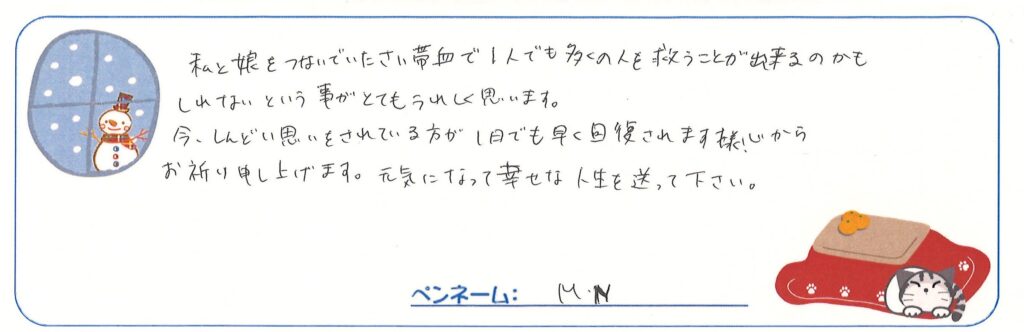 私と娘をつないでいたさい帯血で1人でも多くの人を救うことが出来るのかも
しれないという事がとてもうれしく思います。
今、しんどい思いをされている方が1日でも早く回復されます様心から
お祈り申し上げます。元気になって幸せな人生を送って下さい。
ペンネーム: M.N